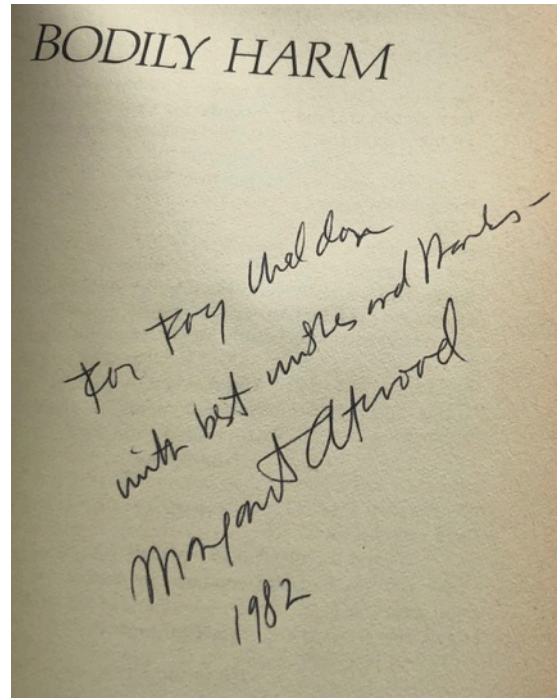 BODILY HARM
For Fay Weldon
with best wishes and thanks –
Margaret Atwood
1982